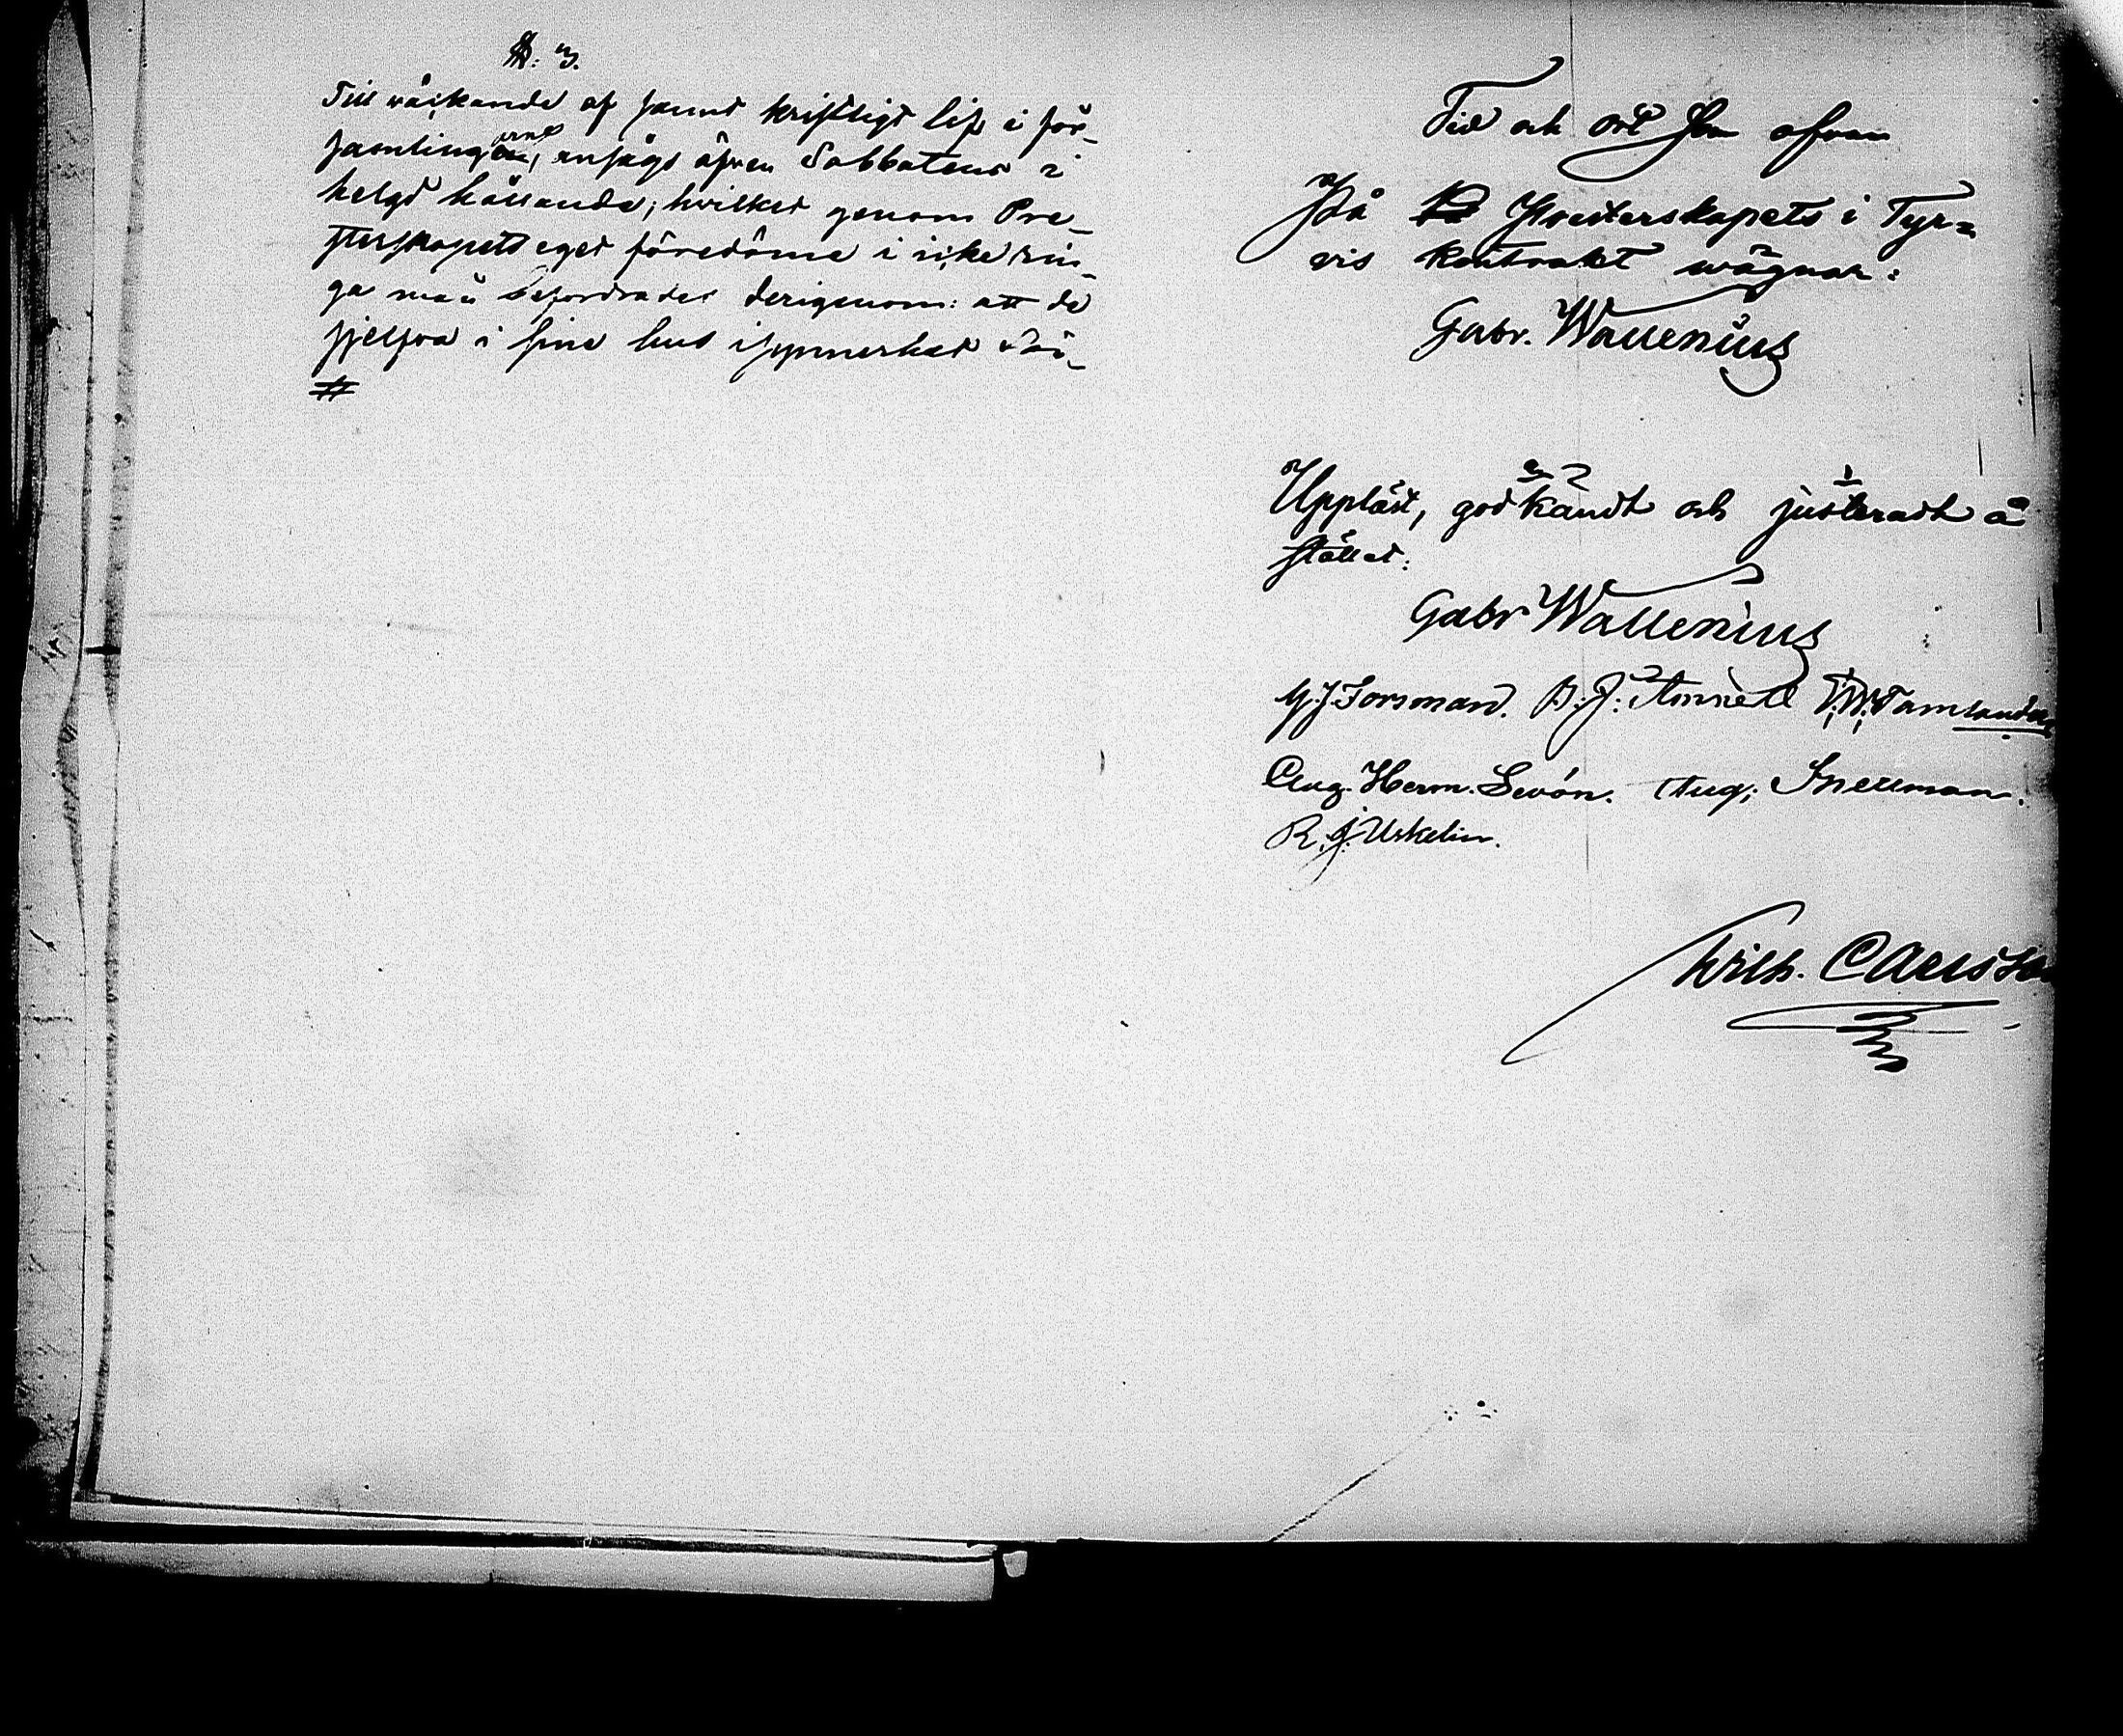 §. 3.
Till väckande af sannt kristligt lif i för-
samlingarne, ansågs äfven Sabbatens i
helgd hållande, hvilket genom Pre-
sterskapets eget föredöme i icke rin-
ga mån befordrades derigenom: att de
sjelfva i sina hus isynnerhet
#
Tid och ort som ofvan
På Presterskapets i Tyr=
vis Kontrakt wägnar:
Gabr. Wallenius
Uppläst, godkändt och justeradt å
stället:
Gabr Wallenius
G. J. Forsman.
Aug. Herm. Levón. Aug. Snellman.
R. J. Uskelin.
Wilh. Carlsson